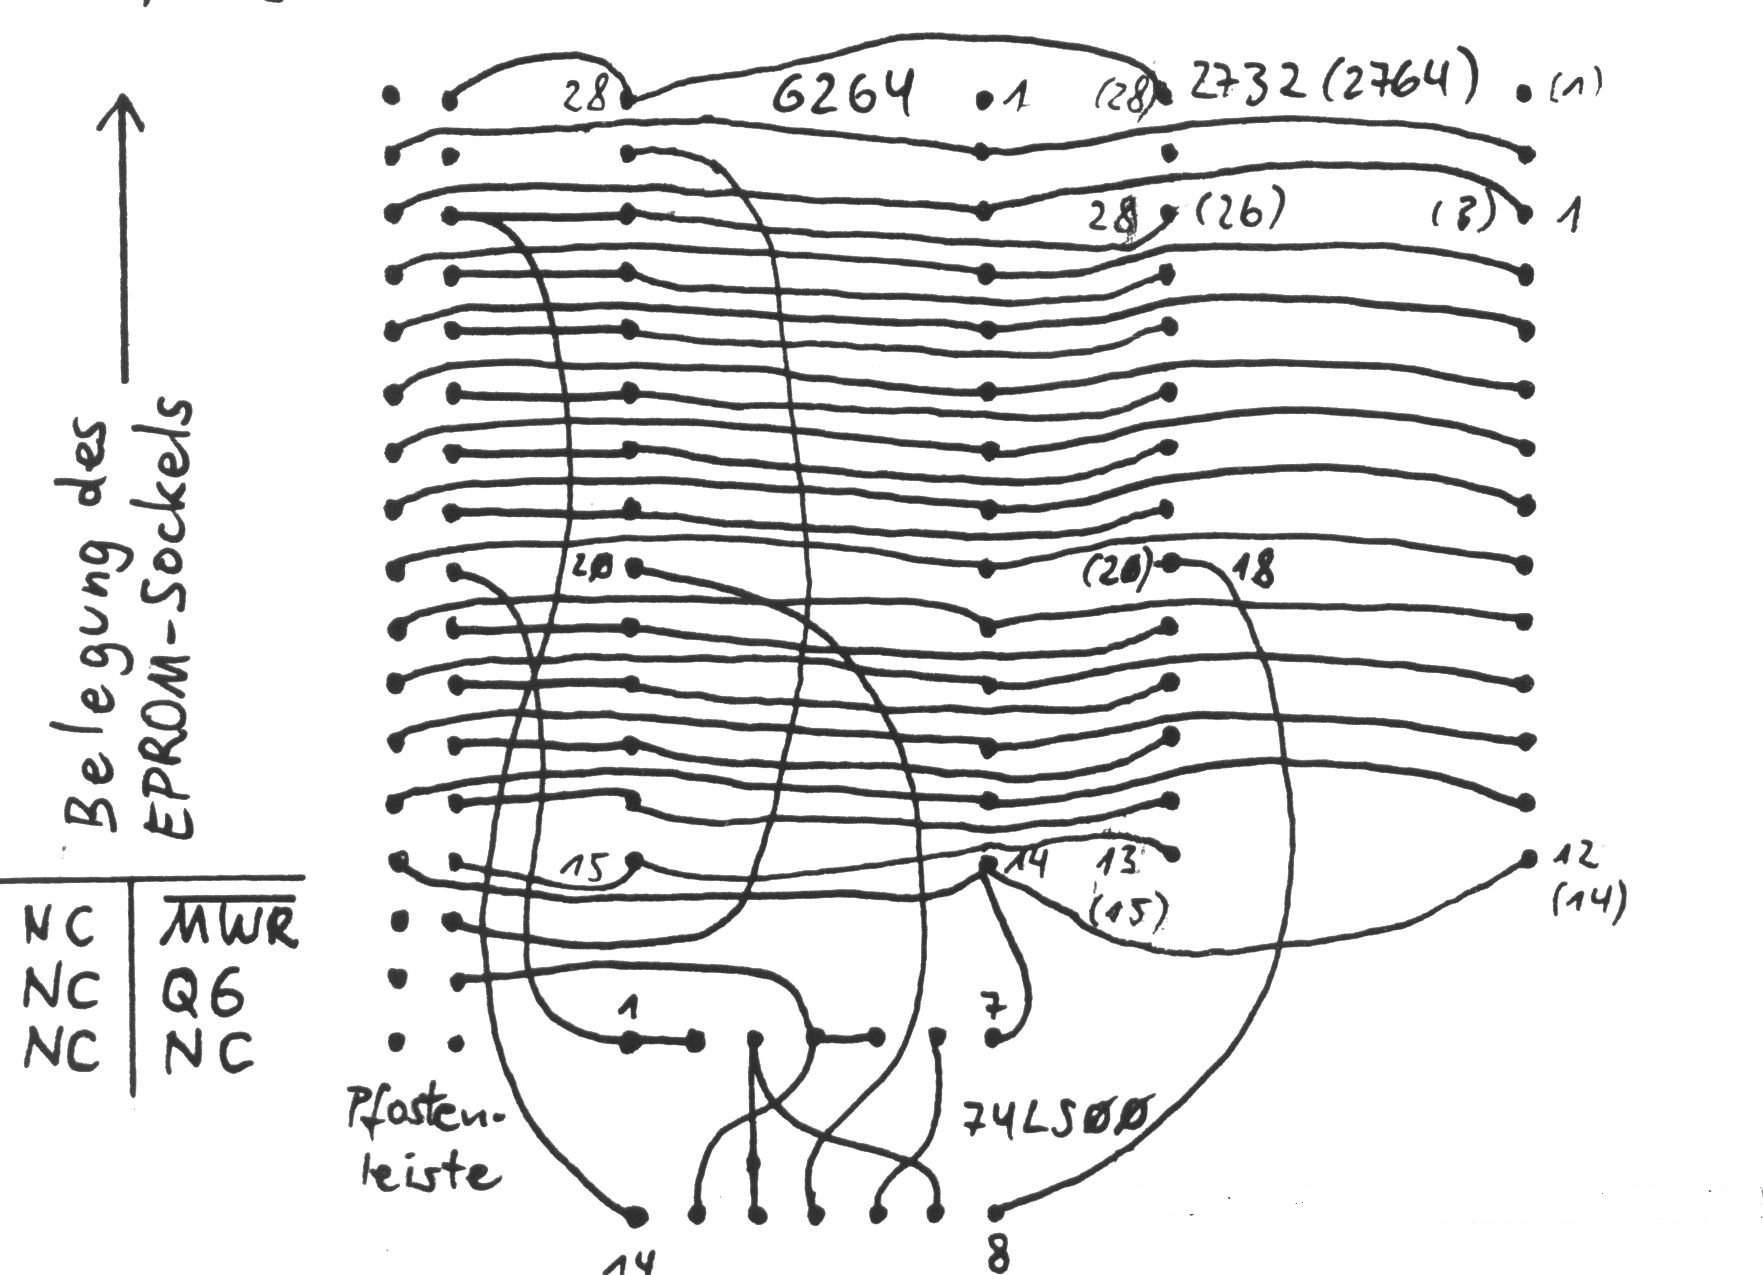 28 6264 1 (28) 2732 (2764) (1)
28 (26) (3) 1
Belegung des
EPROM-Sockels
20 (20) 18
15 14 13 12
(15) (14)
NC MWR
NC Q6
NC NC
1 7
Pfosten-
leiste
74LS00
14 8